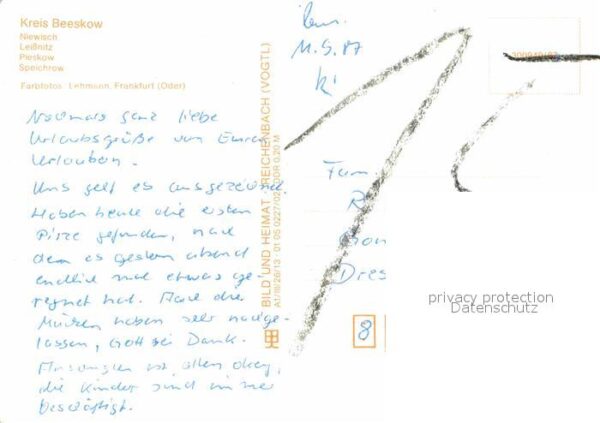 Kreis Beeskow
Niewisch
Leißnitz
Pieskow
Speichrow
Farbfotos: Lehmann, Frankfurt (Oder)
Nochmals ganz liebe
Urlaubsgrüße von Euren
Urlaubern.
Uns geht es ausgezeichnet.
Haben heute die ersten
Pilze gefunden, nach
dem es gestern abend
endlich mal etwas ge-
regnet hat. Auch die
Mücken haben sehr nachge-
lassen, Gott sei Dank.
Ansonsten ist alles okay,
die Kinder sind immer
beschäftigt.
BILD UND HEIMAT REICHENBACH (VOGTL)
A1/III/26/13 01 05 0227/02 DDR 0,20 M
Fam.
Dres
8
privacy protection
Datenschutz